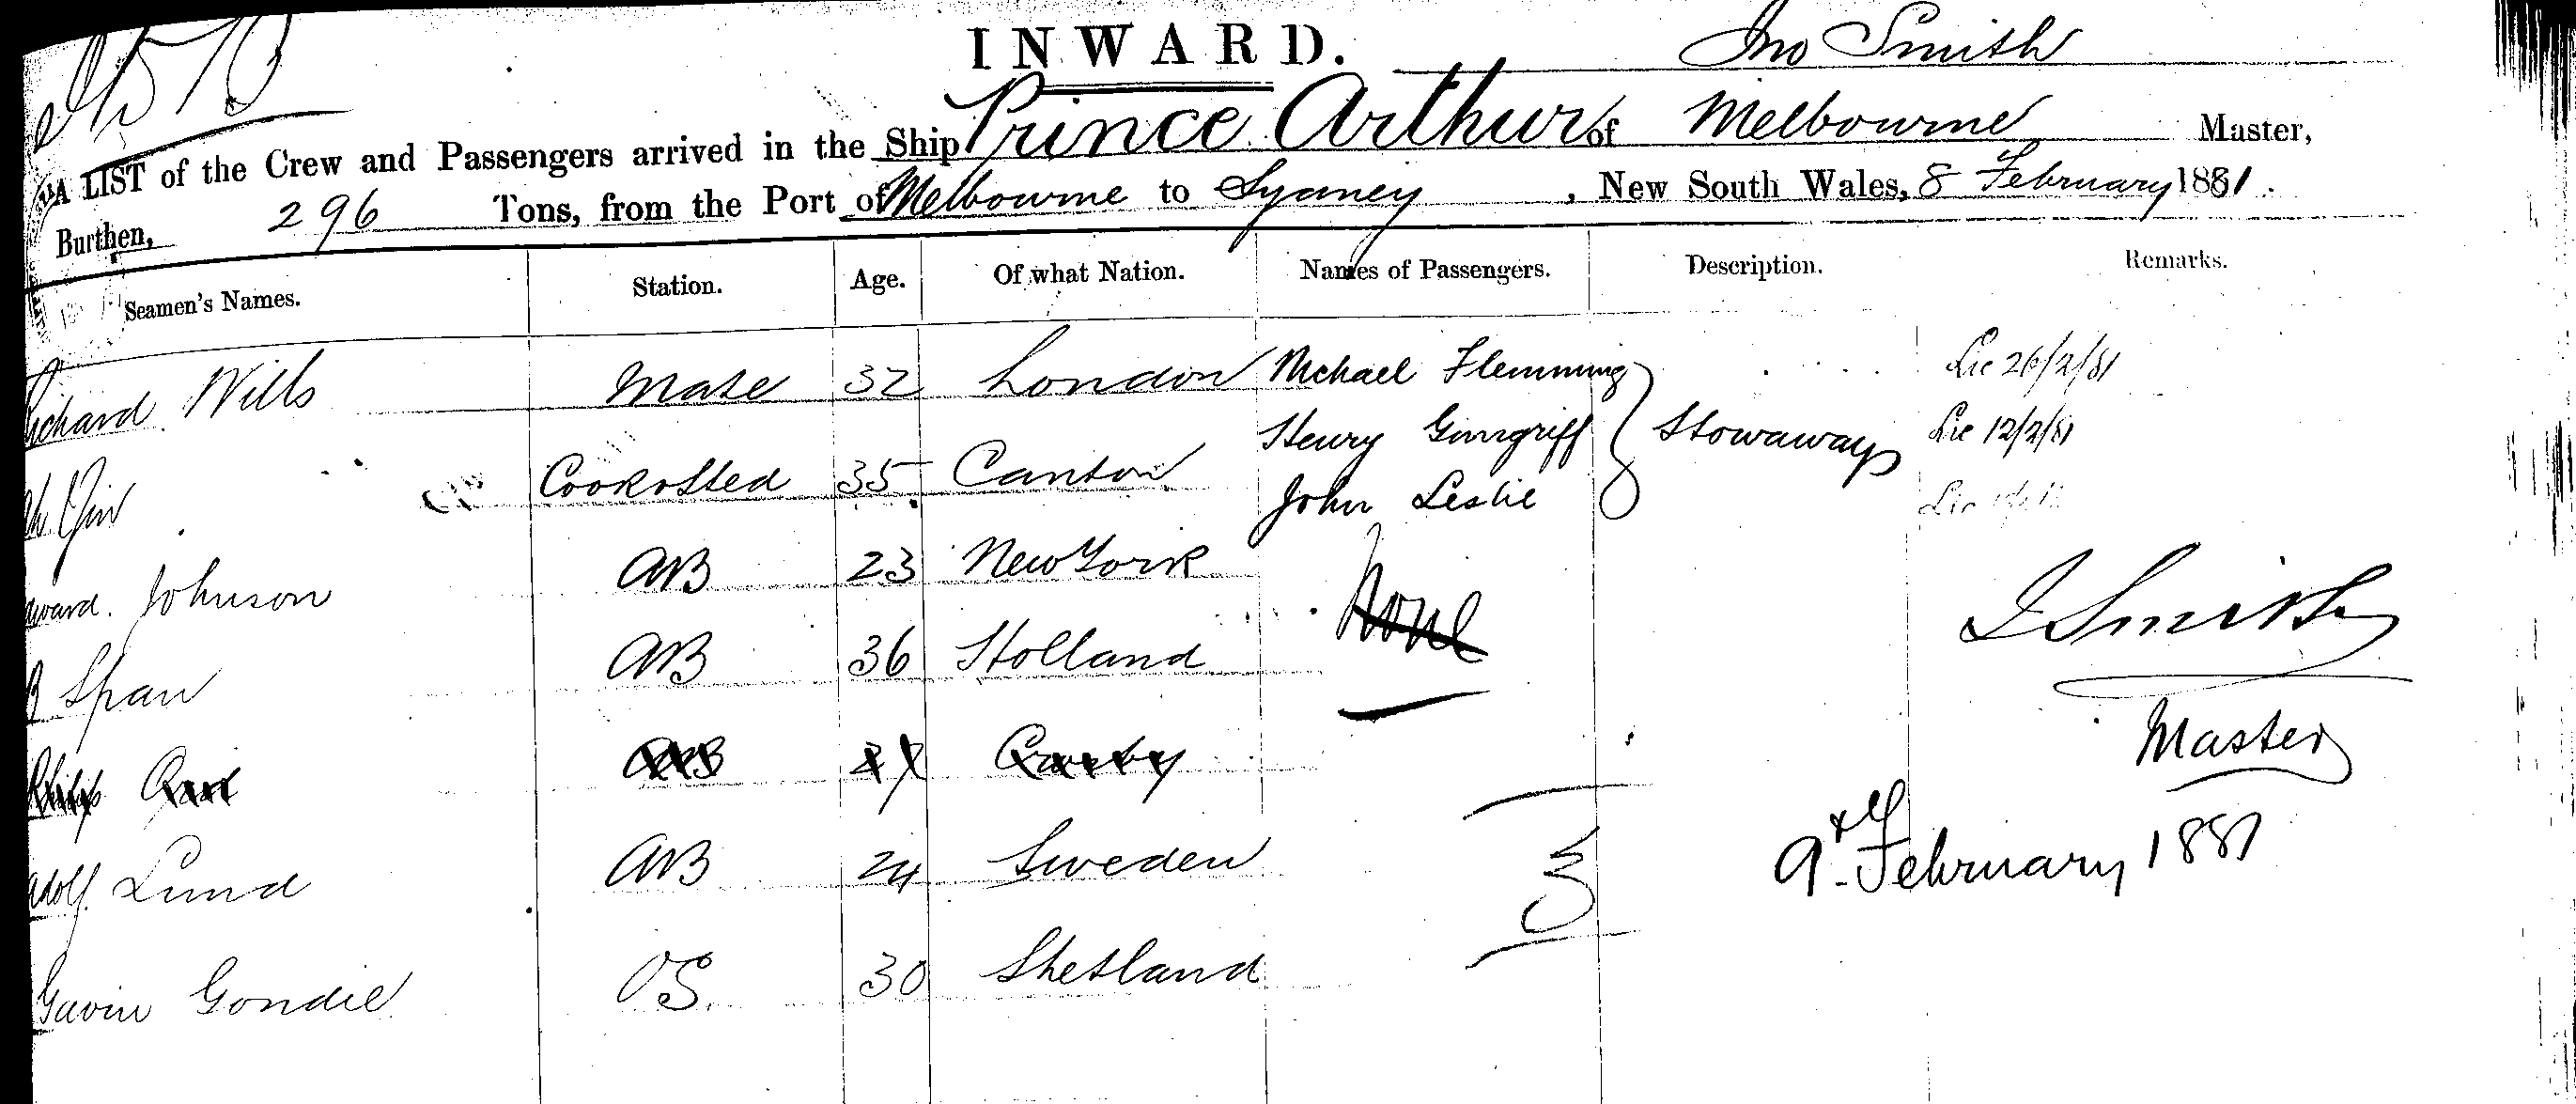 INWARD.
Jno Smith
A LIST of the Crew and Passengers arrived in the Ship Prince Arthur of Melbourne Master,
Burthen, 296 Tons, from the Port of Melbourne to Sydney, New South Wales, 8 February 1881.
Seamen's Names. Station. Age. Of what Nation. Names of Passengers. Description. Remarks.
Richard Wills Mate 32 London Michael Flemming Lic 26/2/81
Henry Gimgriff Stowaways Lic 12/2/81
Ah Cook & Sted 35 Canton
John Leslie Lic
Edward Johnson AB 23 New York
None
B Span AB 36 Holland J Smith
Master
AB
Adolf Lund AB 24 Sweden 9th February 1881
Gavin Gondie OS. 30 Shetland